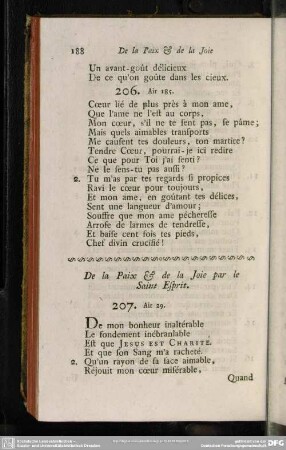 188 De la Paix & de la Joie
Un avant-goût délicieux
De ce qu'on goûte dans les cieux.
206. Air 185.
Cœur lié de plus près à mon ame,
Que l'ame ne l'est au corps,
Mon cœur, s'il ne te sent pas, se pâme;
Mais quels aimables transports
Me causent tes douleurs, ton martire?
Tendre Cœur, pourrai-je ici redire
Ce que pour Toi j'ai senti?
Ne le sens-tu pas aussi?
2. Tu m'as par tes regards si propices
Ravi le cœur pour toujours,
Et mon ame, en goûtant tes délices,
Sent une langueur d'amour;
Souffre que mon ame pécheresse
Arrose de larmes de tendresse,
Et baise cent fois tes pieds,
Chef divin crucifié!
De la Paix & de la Joie par le
Saint Esprit.
207. Air 29.
De mon bonheur inaltérable
Le fondement inébranlable
Est que JESUS EST CHARITE
Et que son Sang m'a racheté.
2. Qu'un rayon de sa face aimable,
Réjouit mon cœur misérable,
Quand
DFG